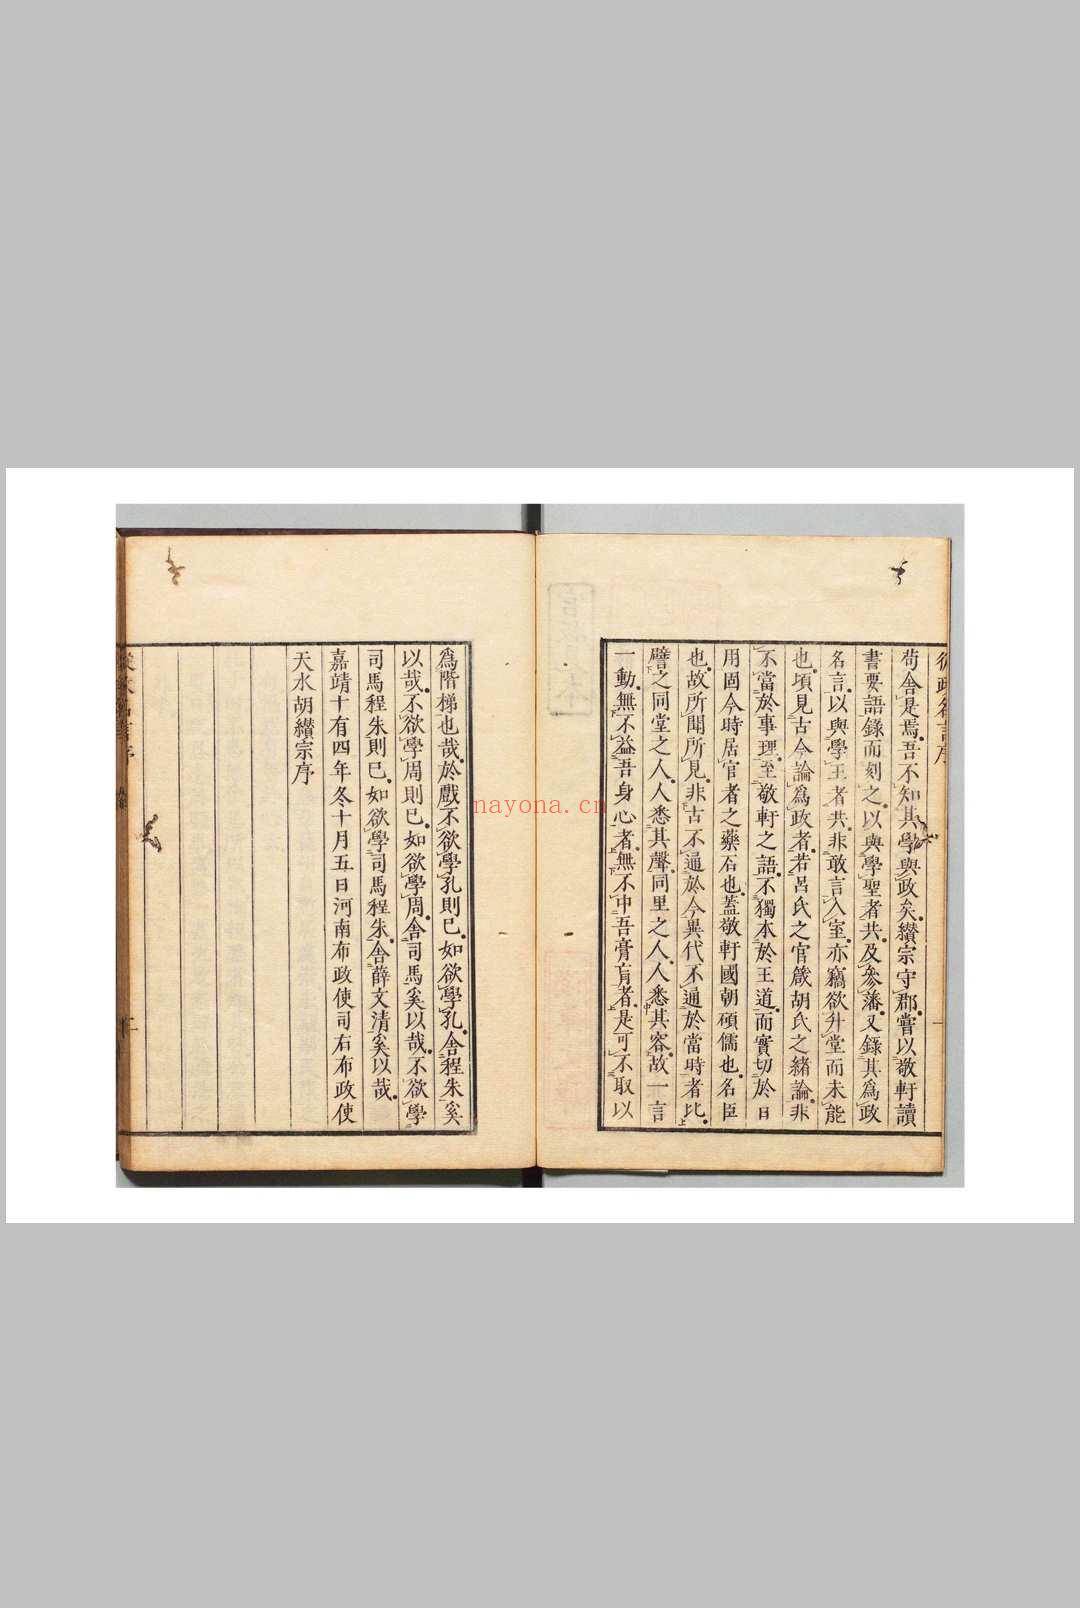 苟舍是焉吾不知其學與政矣纘宗守郡嘗以敬軒讀
書要語錄而刻之以與學聖者共及參藩又錄其爲政
名言以與學王者共非敢言入室亦竊欲升堂而未能
也頃見古今論爲政者若呂氏之官箴胡氏之緒論非
不當於事理至敬軒之語不獨本於王道而實切於日
用固今時居官者之藥石也蓋敬軒國朝碩儒也名臣
也故所聞所見非古不通於今異代不通於當時者比
譬之同堂之人人悉其聲同里之人人悉其容故一言
一動無不益吾身心者無不中吾膏肓者是可不取以
爲階梯也哉於戲不欲學孔則已如欲學孔舍程朱奚
以哉不欲學周則已如欲學周舍司馬奚以哉不欲學
司馬程朱則已如欲學司馬程朱舍薛文清奚以哉
嘉靖十有四年冬十月五日河南布政使司右布政使
天水胡纘宗序
nayona.cn